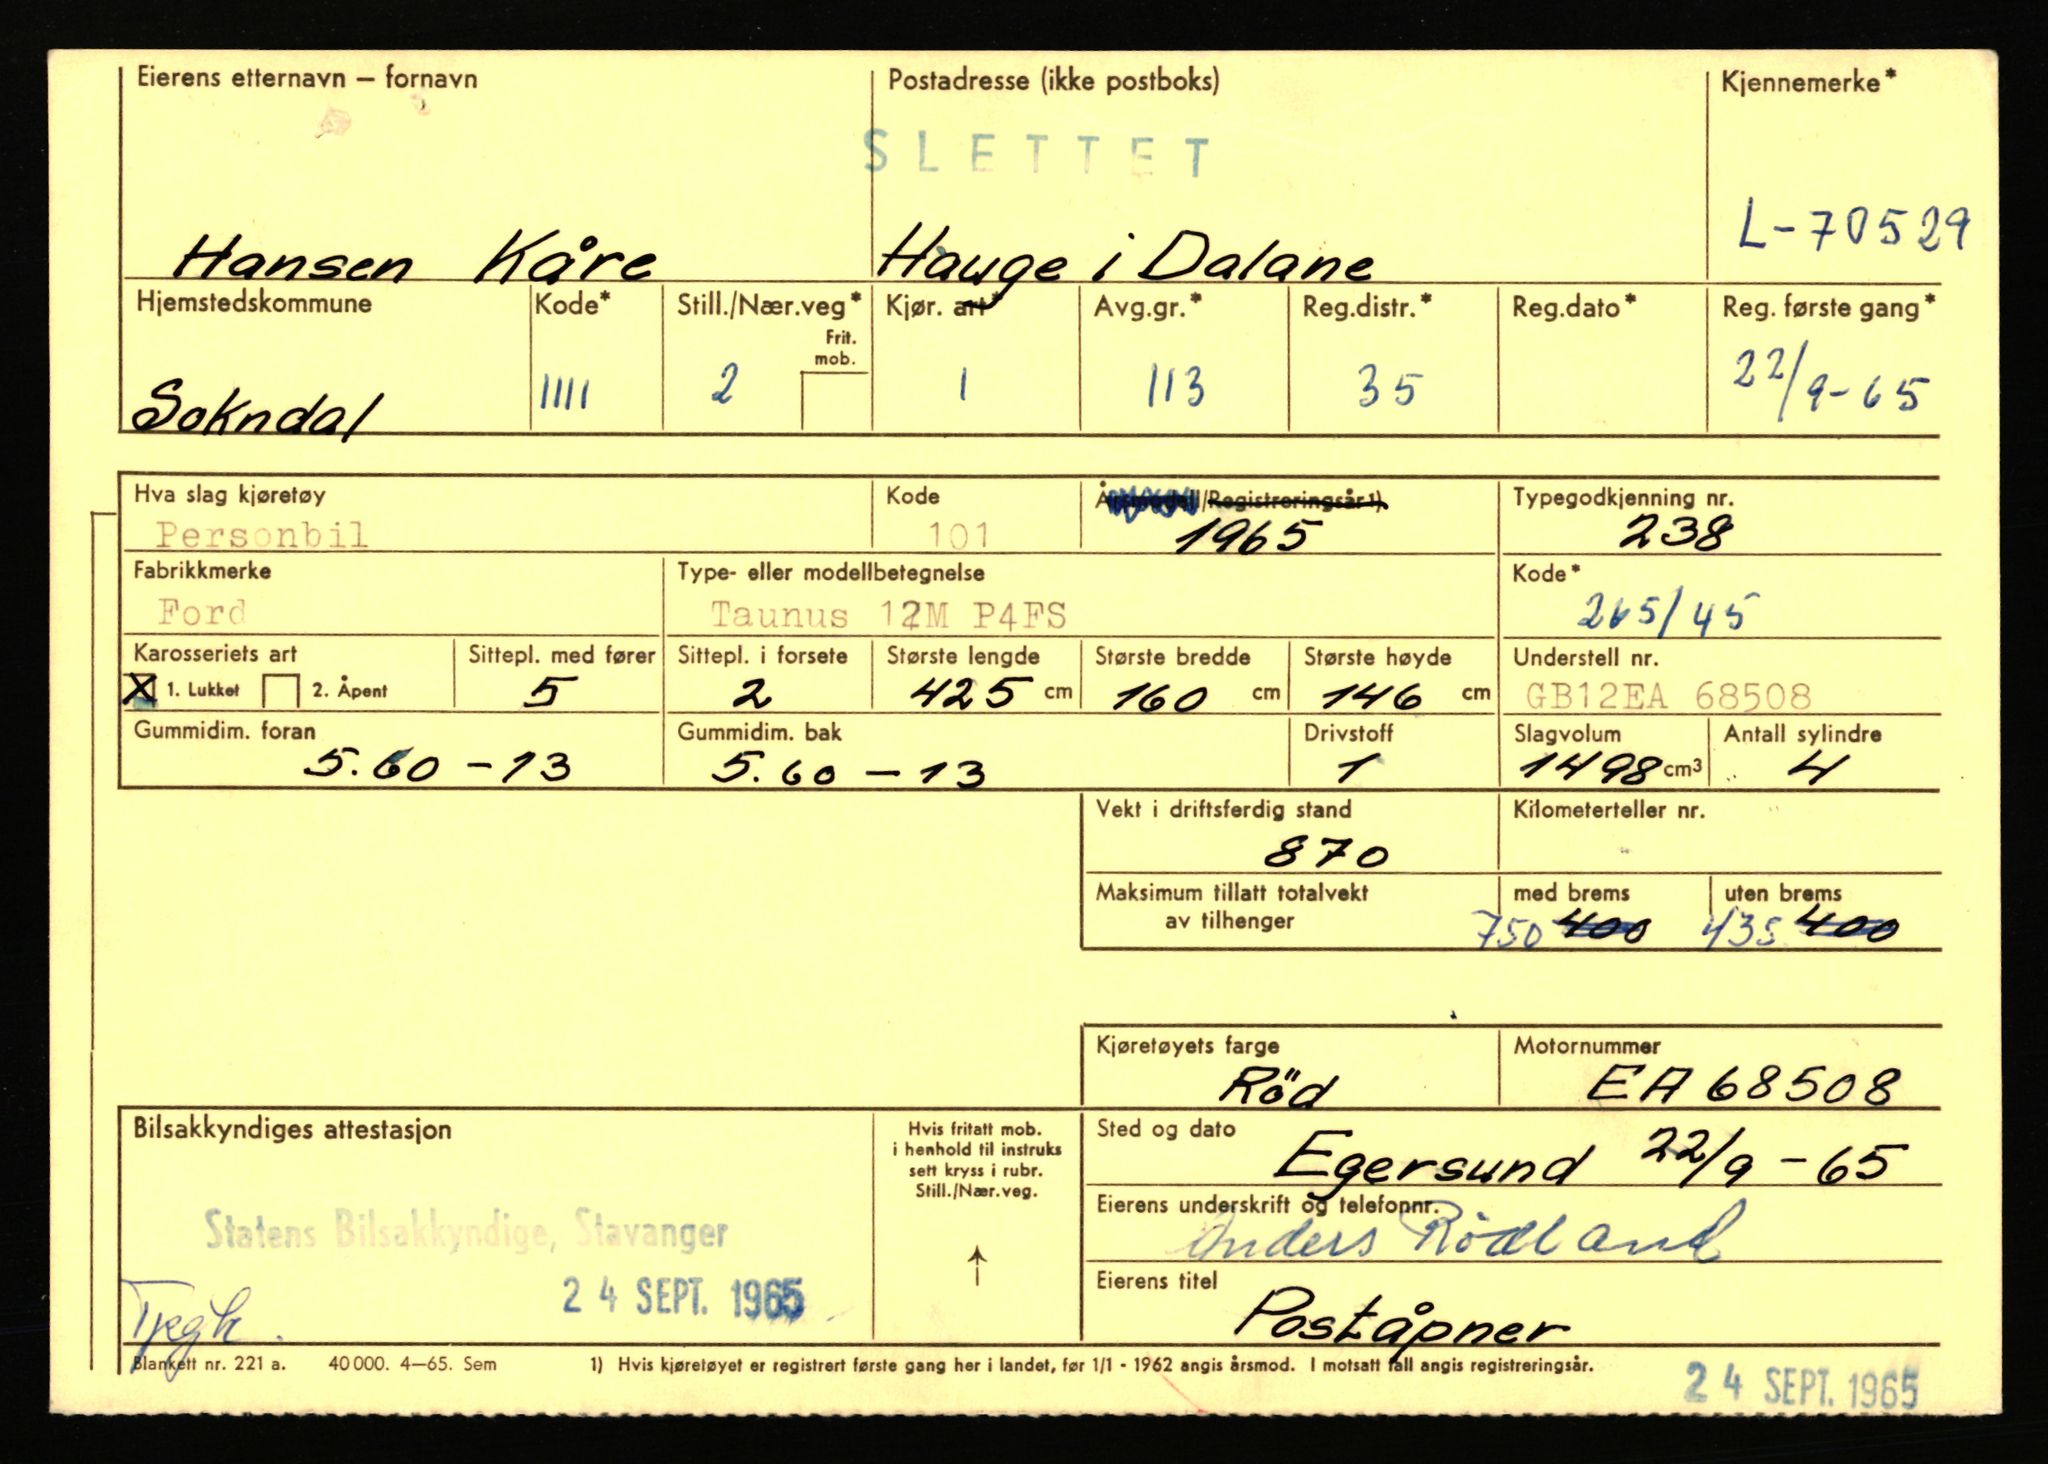 Eierens etternavn – fornavn Postadresse (ikke postboks) Kjennemerke*
SLETTET
Hansen Kåre Hauge i Dalane L-70529
Hjemstedskommune Kode* Still./Nær.veg* Kjør. art* Avg.gr.* Reg.distr.* Reg.dato* Reg. første gang*
Frit.
mob.
Sokndal 1111 2 1 113 35 22/9-65
Hva slag kjøretøy Kode Årsmodell/Registreringsår 1) Typegodkjenning nr.
Personbil 101 1965 238
Fabrikkmerke Type- eller modellbetegnelse Kode*
Ford Taunus 12M P4FS 265/45
Karosseriets art Sittepl. med fører Sittepl. i forsete Største lengde Største bredde Største høyde Understell nr.
X 1. Lukket 2. Åpent 5 2 425 cm 160 cm 146 cm GB12EA 68508
Gummidim. foran Gummidim. bak Drivstoff Slagvolum Antall sylindre
5.60 - 13 5.60 - 13 1 1498 cm3 4
Vekt i driftsferdig stand Kilometerteller nr.
870
Maksimum tillatt totalvekt med brems uten brems
av tilhenger 750 400 435 400
Kjøretøyets farge Motornummer
Röd EA 68508
Bilsakkyndiges attestasjon Hvis fritatt mob. Sted og dato
i henhold til instruks
sett kryss i rubr.
Still./Nær.veg.
Egersund 22/9 - 65
Eierens underskrift og telefonnr.
Statens Bilsakkyndige, Stavanger Anders Rödland
Eierens titel
24 SEPT. 1965
Poståpner
Blankett nr. 221 a. 40 000. 4–65. Sem 1) Hvis kjøretøyet er registrert første gang her i landet, før 1/1 - 1962 angis årsmod. I motsatt fall angis registreringsår.
24 SEPT. 1965